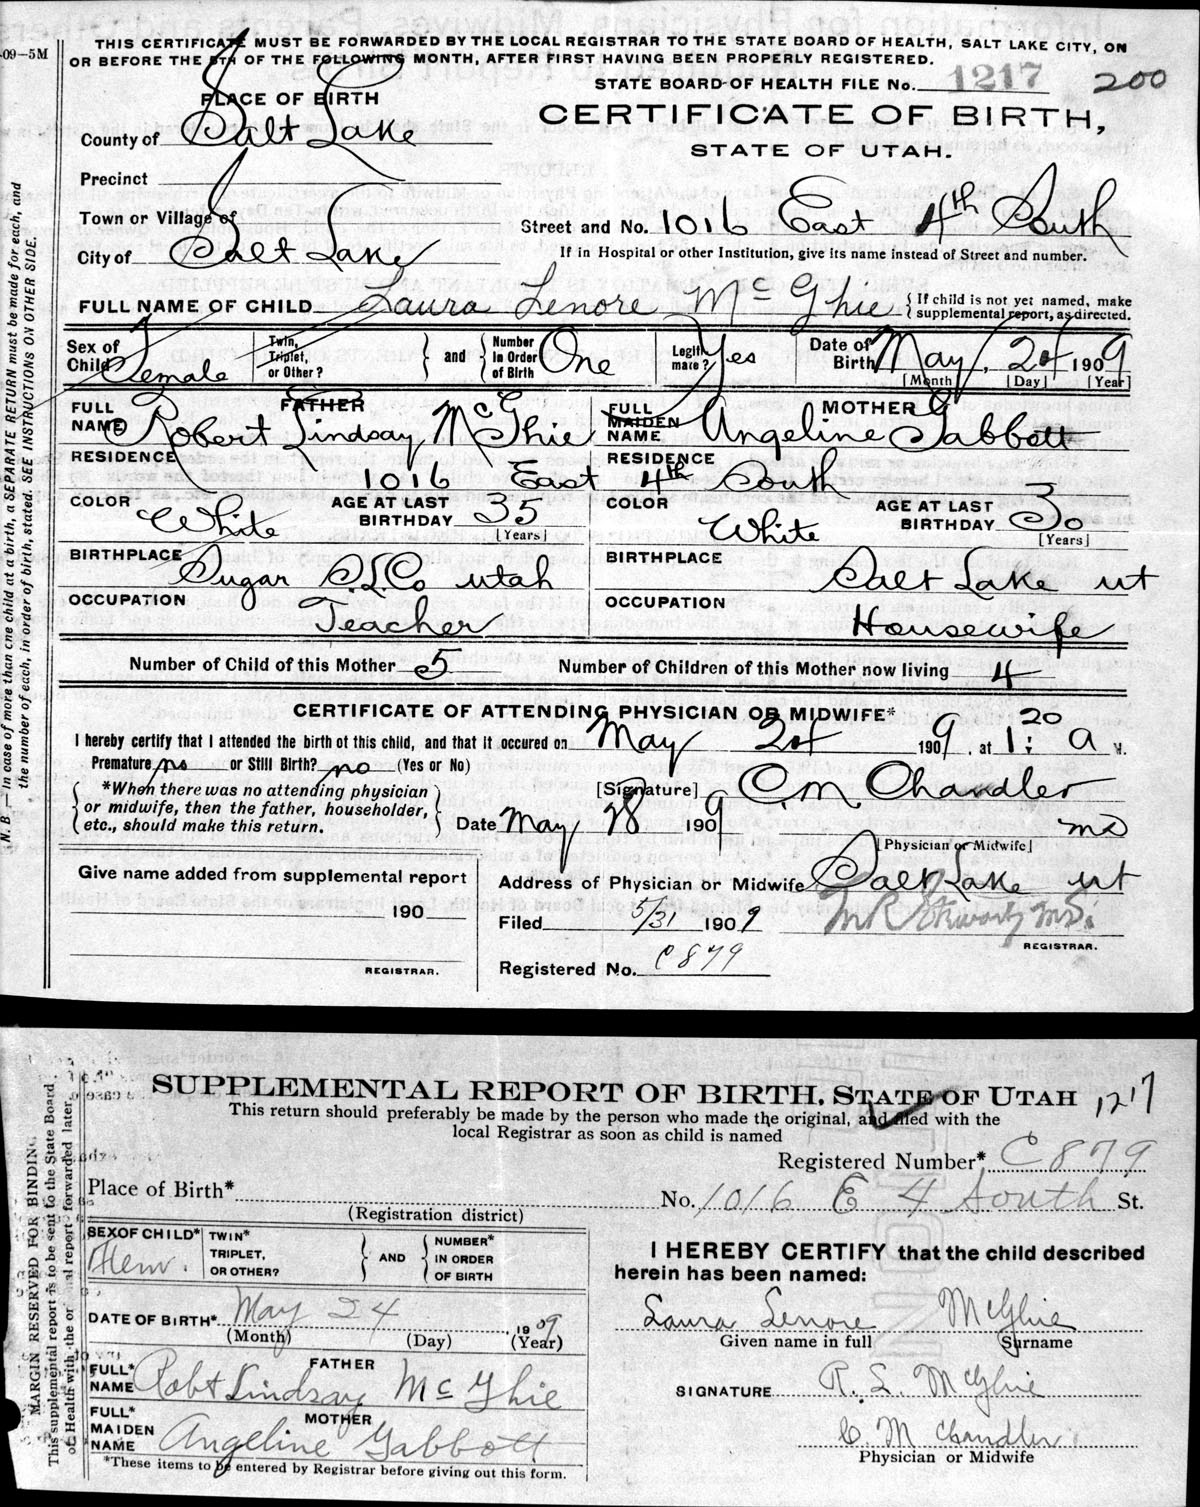 09—5M
THIS CERTIFICATE MUST BE FORWARDED BY THE LOCAL REGISTRAR TO THE STATE BOARD OF HEALTH, SALT LAKE CITY, ON
OR BEFORE THE 5TH OF THE FOLLOWING MONTH, AFTER FIRST HAVING BEEN PROPERLY REGISTERED.
STATE BOARD OF HEALTH FILE No. 1217 200
PLACE OF BIRTH
CERTIFICATE OF BIRTH,
County of Salt Lake
STATE OF UTAH.
Precinct
Town or Village of
Street and No. 1016 East 4th South
City of Salt Lake
If in Hospital or other Institution, give its name instead of Street and number.
FULL NAME OF CHILD Laura Lenore McGhie { If child is not yet named, make
supplemental report, as directed.
Sex of Child Female
Twin, Triplet, or Other?
and
Number in Order of Birth One
Legitimare? Yes
Date of Birth May, 24 1909
[Month] [Day] [Year]
FATHER
FULL NAME Robert Lindsay McGhie
MOTHER
FULL MAIDEN NAME Angeline Gabbott
RESIDENCE RESIDENCE
1016 East 4th South
COLOR White
AGE AT LAST BIRTHDAY 35
[Years]
COLOR White
AGE AT LAST BIRTHDAY 30
[Years]
BIRTHPLACE Sugar S.L.Co utah
BIRTHPLACE Salt Lake ut
OCCUPATION Teacher
OCCUPATION Housewife
Number of Child of this Mother 5 Number of Children of this Mother now living 4
CERTIFICATE OF ATTENDING PHYSICIAN OR MIDWIFE*
I hereby certify that I attended the birth of this child, and that it occured on May 24 1909, at 1:20 a M.
Premature no or Still Birth? no (Yes or No)
*When there was no attending physician
or midwife, then the father, householder,
etc., should make this return.
[Signature] C.M. Chandler
Date May 28 1909 MD
[Physician or Midwife]
Give name added from supplemental report
190
REGISTRAR.
Address of Physician or Midwife Salt Lake ut
Filed 5/31 1909
REGISTRAR.
Registered No. C879
N. B.—In case of more than one child at a birth, a SEPARATE RETURN must be made for each, and
the number of each, in order of birth, stated. SEE INSTRUCTIONS ON OTHER SIDE.
SUPPLEMENTAL REPORT OF BIRTH. STATE OF UTAH 1217
This return should preferably be made by the person who made the original, and filed with the
local Registrar as soon as child is named
Registered Number* C879
Place of Birth* No. 1016 E 4 South St.
(Registration district)
SEX OF CHILD* Fem.
TWIN* TRIPLET, OR OTHER?
AND
NUMBER* IN ORDER OF BIRTH
I HEREBY CERTIFY that the child described
herein has been named:
DATE OF BIRTH* May 24 1909
(Month) (Day) (Year)
Laura Lenore McGhie
Given name in full Surname
FATHER
FULL* NAME Robt Lindsay McGhie
SIGNATURE R. L. McGhie
MOTHER
FULL* MAIDEN NAME Angeline Gabbott
C M Chandler
Physician or Midwife
*These items to be entered by Registrar before giving out this form.
MARGIN RESERVED FOR BINDING
This supplemental report is to be sent to the State Board
of Health with the report forwarded later.